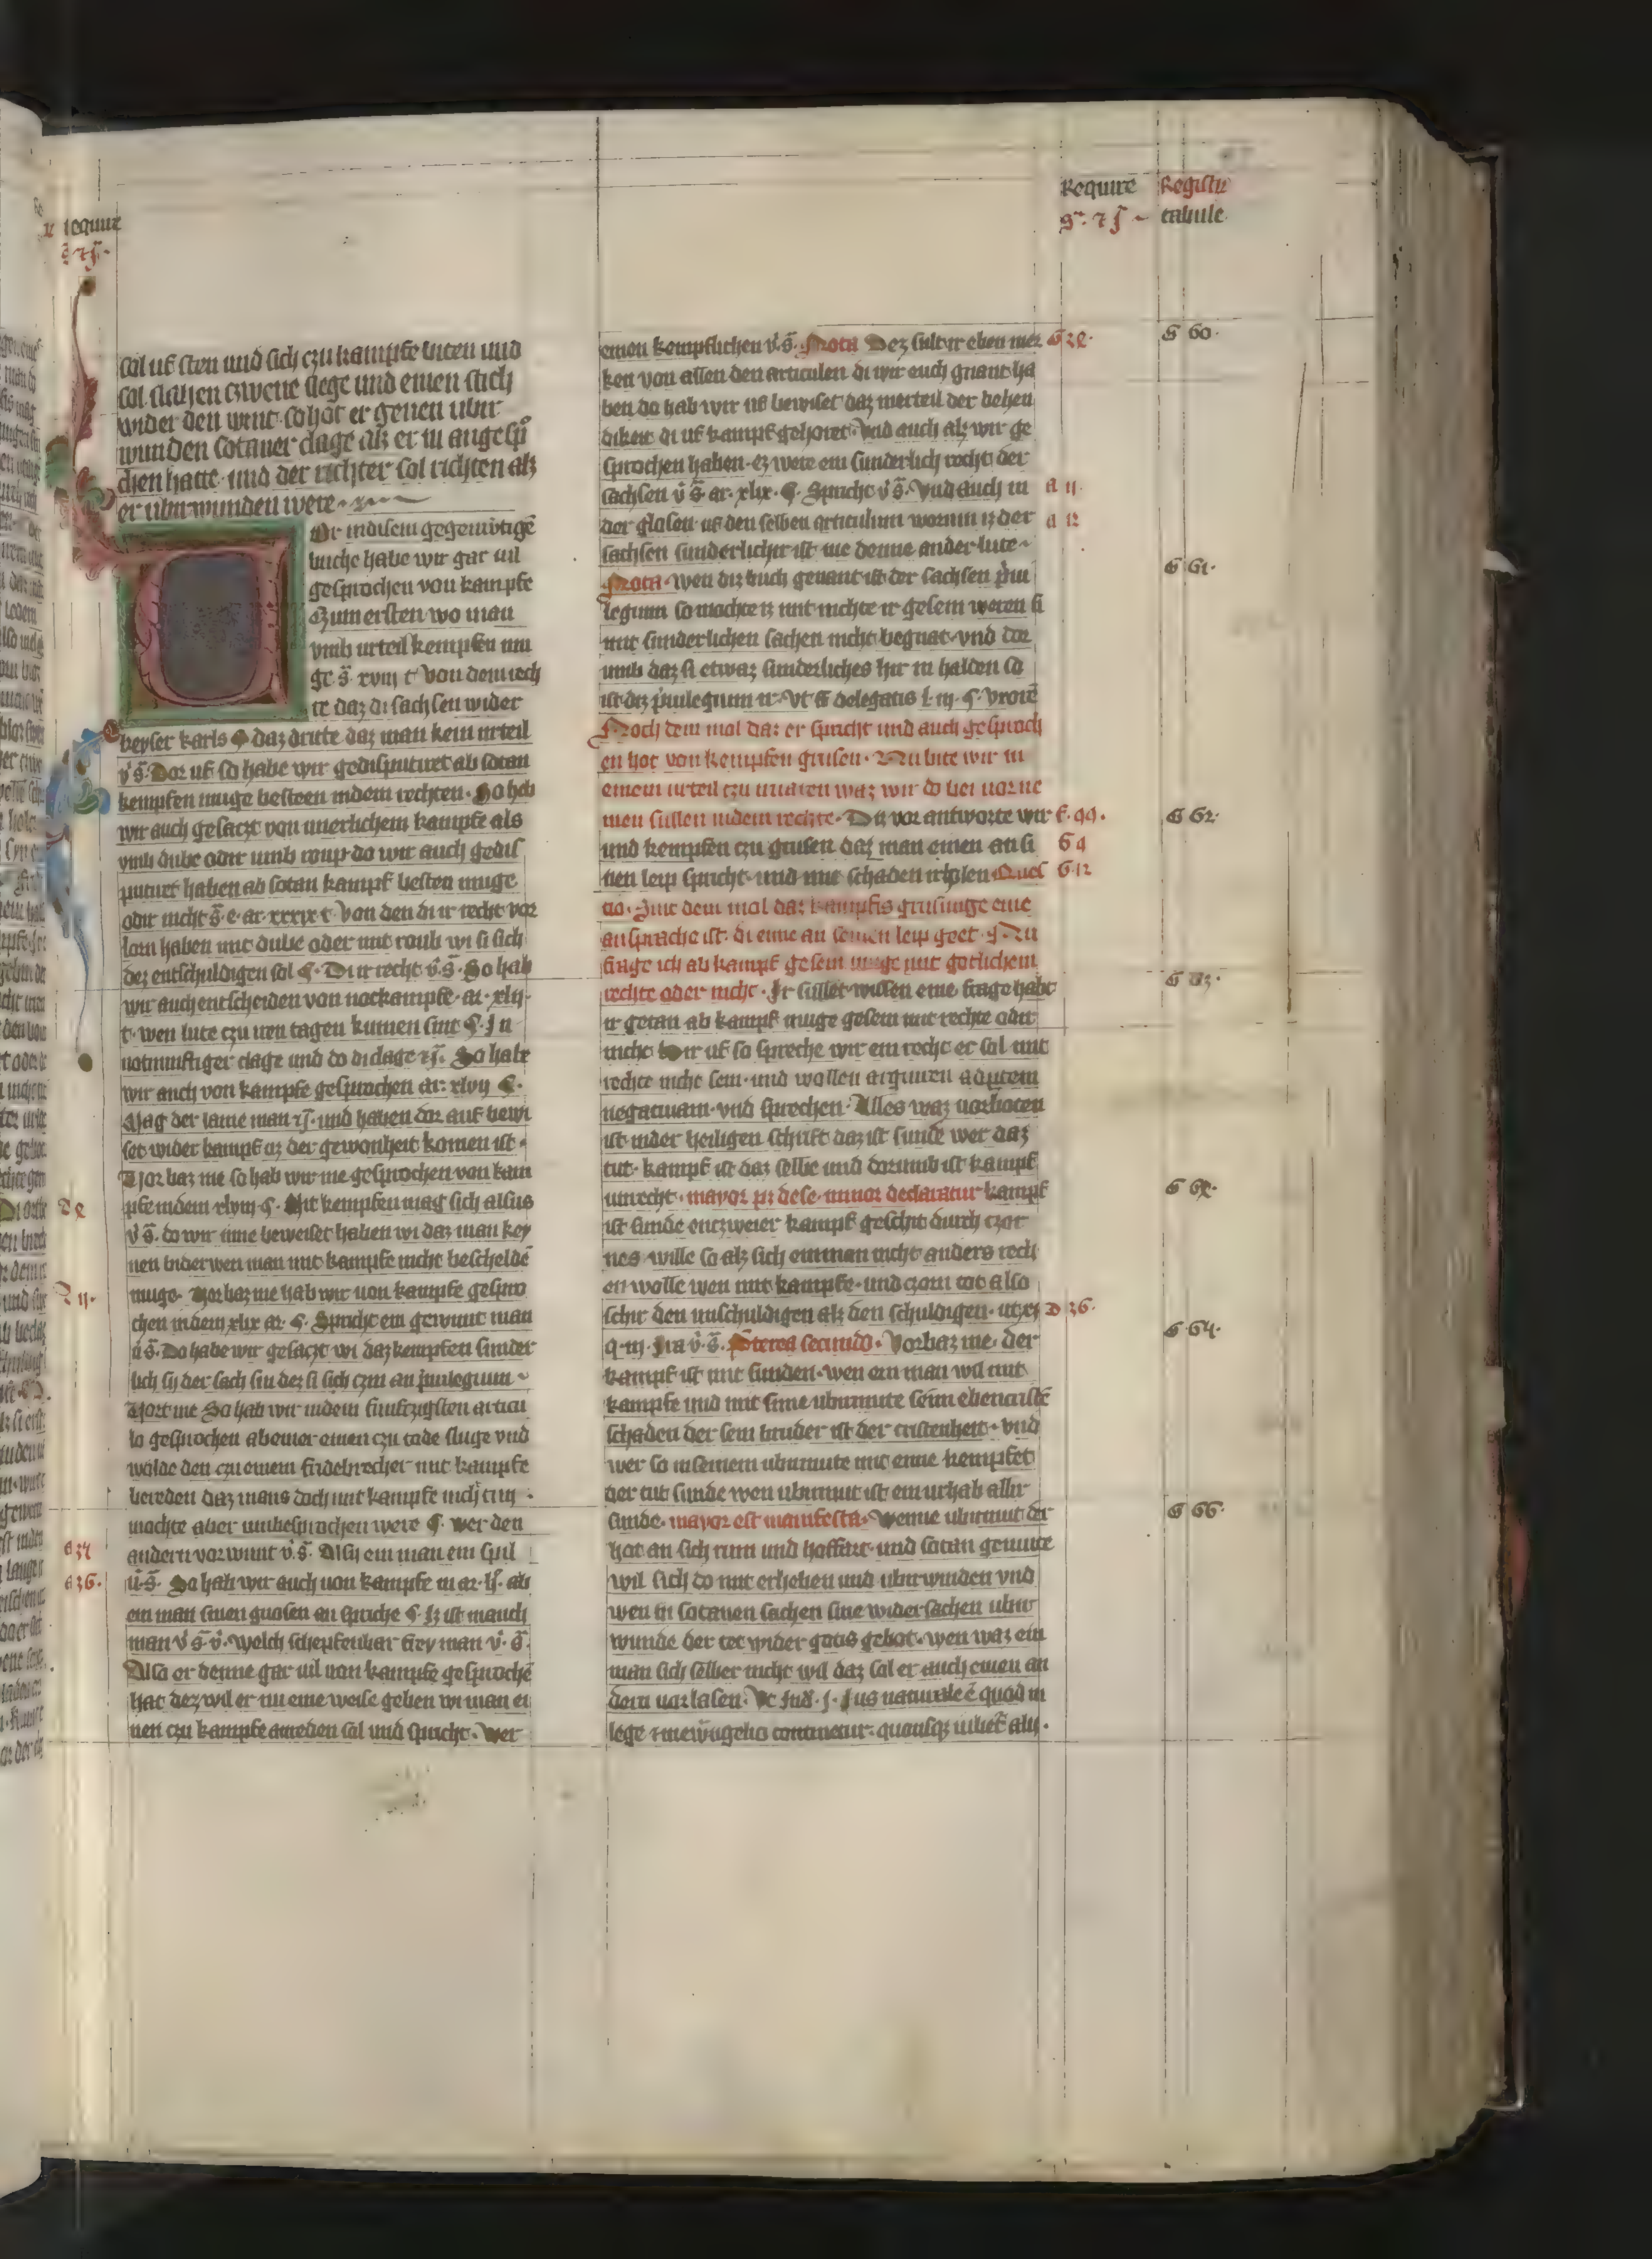 Require Registru
gͣ. ⁊ ß tabule
sal uf sten und sich czu kampfe biten und
sal slahen czwene slege und einen stich
wider den wint. so hot er genen ubir
wunden sotaner clage alz er in angesp°
chen hatte. und der richter sol richten alz
er ubirwunden were
Or indisem gegenw̾tigē
buche habe wir gar uil
gesprochen von kampfe
Czum ersten wo man
vmb urteil kempfen mu
ge s̄. xviij c̾ Von dem rech
te daz di sachsen wider
keyser karls ¶ daz dritte daz man kein urteil
v̾ s̄. Dor uf so habe wir gedisputiret ab sotan
kempfen muge besteen indem rechten. So hab
wir auch gesaczt von unerlichem kampfe als
vmb dube odir umb roup. do wir auch gedis
putiret haben ab sotan kampf besten muge
odir nicht s̄. e. ar. xxxix c̾ Von den di ir recht vor
lorn haben mit dube oder mit roub wi si sich
dez entschuldigen sol ¶. Di ir recht v̾ s̄. So hab
wir auch entscheiden von notkampfe. ar. xlij.
c̾. wen lute czu iren tagen kumen sint ¶. In
notnunftiger clage und do di clage ⁊ß. So habe
wir auch von kampfe gesprochen ar. xlvij ¶.
Mag der lame man ⁊ß. und haben dor auf bewi
set wider kampf uz der gewonheit komen ist.
Vorbaz me so hab wir me gesprochen von kam
pfe indem xlviij ¶. Mit kempfen mag sich alsus
v̾ s̄. do wir inne beweiset haben wi daz man key
nen biderwen man mit kampfe nicht bescheldē
muge. Vorbaz me hab wir uon kampfe gespro
chen indem xlix ar. ¶. Spricht ein gewunt man
v̾ s̄. Do habe wir gesaczt wi daz kempfen sunder
lich sy der sachsin dez si sich czin an priuilegium
Vort me So hab wir indem funfczigsten articu
lo gesprochen ab einer einen czu tode sluge vnd
wolde den czu einem fridebrecher mit kampfe
bereden daz mans doch mit kampfe nicht tun
mochte aber umbesprochen were ¶. wer den
andern vorwunt v̾ s̄. Alsy ein man ein spil
v̾ s̄. So hab wir auch uon kampfe in ar. lj. ab
ein man sinen gnosen an spriche ¶. Iz ist manch
man v̾ s̄ v̾. welch schepfenbar frey man v̾. s̄.
Also er denne gar uil uon kampfe gesprochē
hat dez wil er nu eine weise geben wi man ei
nen czu kampfe anreden sal und spricht. Wer
d e
a 34
a 36.
einen kempflichen v̾. s̄. Nota Dez sult ir eben mer G 2e.
ken von allen den articulen di wir euch gnant ha
ben do hab wir uf bewiset daz merteil der behen
dikeit di uf kampf gehoret. Vnd auch alz wir ge
sprochen haben. ez were ein sunderlich recht der
sachsen v̾ s̄. ar. xlix. ¶. Spricht v̾ s̄. Vnd auch in a 11.
der glosen uf den selben articulum worum iz der a 12
sachsen sunderlicher ist me denne ander lute
Nota. wen diz buch genant ist der sachsen p̾ui
legium so mochte iz mit nichte ir gesein weren si
mit sunderlichen sachen nicht begnat. vnd dor
umb daz si etwaz sunderliches hir in halden so
ist diz p̾uilegium ir. Vt ff̄ delegatis l. iij. ¶. Vrorē
Noch dem mol daz er spricht und auch gesproch
en hot von kempfen grusen. Nu bite wir in
einem urteil czu uuaren waz wir do bei uorne
men sullen indem rechte. Dir vor antworte wir F. 99.
und kempfen czu grusen daz man einen an si G 9
nen leip spricht. und nue schaden irholen Ques G 12
tio. Sint dem mol daz kampfis grusunge eine
ansprache ist. di eime an seinen leip geet. Nu
frage ich ab kampf gesein muge mit gotlichem
rechte oder nicht. Ir sullet wissen eine frage habt
ir getan ab kampf muge gesein mit rechte odir
nicht hir uf so spreche wir ein recht er sal mit
rechte nicht sein. und wollen arguiren ad partem
negatiuam. vnd sprechen. Alles waz uorboten
ist inder heiligen schrift daz ist sunde wer daz
tut. kampf ist daz selbe und dorumb ist kampf
unrecht. mayor pz de se. minor declaratur kampf
ist sunde entzweier kampf geschit durch czor
nes wille so alz sich ein man nicht anders rech
en wolle wen mit kampfe. und czorn tot also
schir den unschuldigen alz den schuldigen. ut xj D 36.
q. iij. Ira v̾. s̄. P̄terea secundo. Vorbaz me. der
kampf ist mit sunden. wen ein man wil mit
kampfe und mit sime ubirmute seim ebencristē
schaden der sein bruder ist der cristenheit. vnd
wer so in seinem ubirmute mit eime kempfet
der tut sunde wen ubirmut ist ein urhab allir
sunde. mayor est manifesta. Wenne ubirmut der
hot an sich rum und hoffart. und sotan gemute
wil sich do mit erheben und ubirwinden vnd
wen in sotanen sachen sine widersachen ubir
wunde der tet wider gotis gebot. wen waz ein
man sich selber nicht wil daz sal er auch einen an
dern uorlasen. Vt Ind. j. Jus naturale ē quod in
lege ⁊ inew̄ngelio continetur. quousqȝ iubet̄ alij.
G 60.
G 61.
G 62.
G 63.
G 64.
G 66.